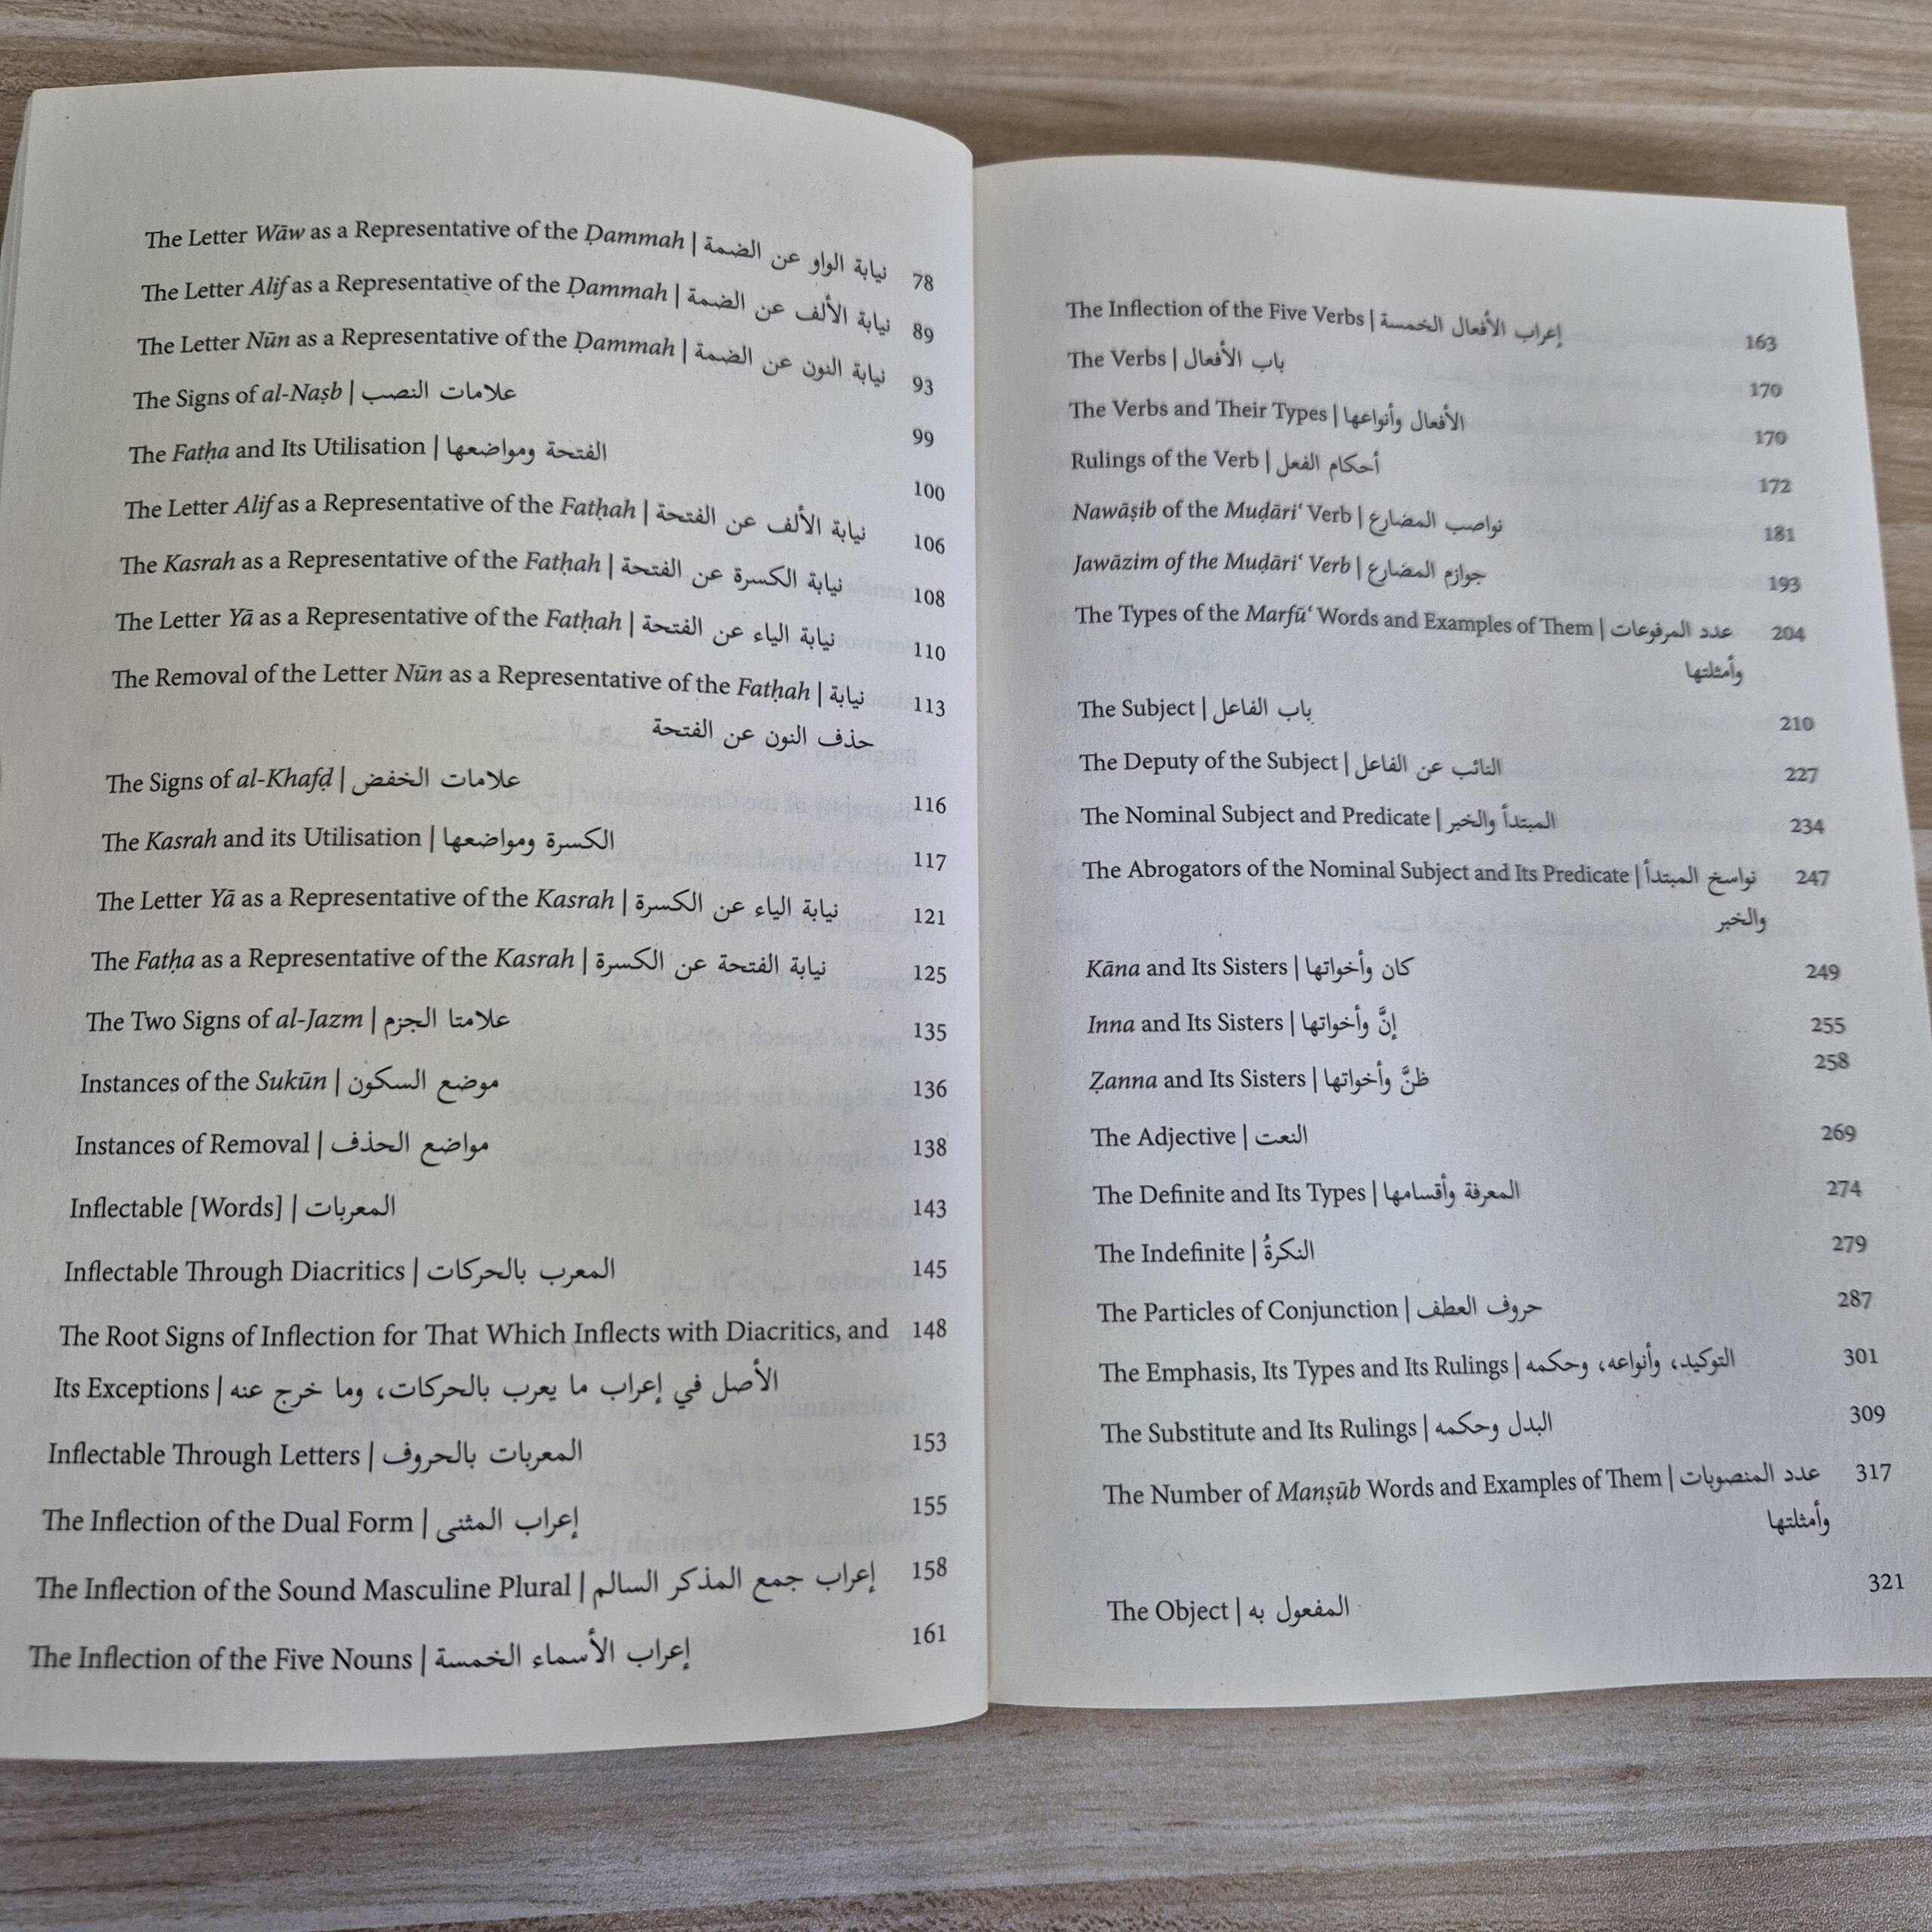 The Letter Wāw as a Representative of the Ḍammah | نيابة الواو عن الضمة 78
The Letter Alif as a Representative of the Ḍammah | نيابة الألف عن الضمة 89
The Letter Nūn as a Representative of the Ḍammah | نيابة النون عن الضمة 93
The Signs of al-Naṣb | علامات النصب 99
The Fatḥa and Its Utilisation | الفتحة ومواضعها 100
The Letter Alif as a Representative of the Fatḥah | نيابة الألف عن الفتحة 106
The Kasrah as a Representative of the Fatḥah | نيابة الكسرة عن الفتحة 108
The Letter Yā as a Representative of the Fatḥah | نيابة الياء عن الفتحة 110
The Removal of the Letter Nūn as a Representative of the Fatḥah | نيابة 113
حذف النون عن الفتحة
The Signs of al-Khafḍ | علامات الخفض 116
The Kasrah and its Utilisation | الكسرة ومواضعها 117
The Letter Yā as a Representative of the Kasrah | نيابة الياء عن الكسرة 121
The Fatḥa as a Representative of the Kasrah | نيابة الفتحة عن الكسرة 125
The Two Signs of al-Jazm | علامتا الجزم 135
Instances of the Sukūn | موضع السكون 136
Instances of Removal | مواضع الحذف 138
Inflectable [Words] | المعربات 143
Inflectable Through Diacritics | المعرب بالحركات 145
The Root Signs of Inflection for That Which Inflects with Diacritics, and 148
Its Exceptions | الأصل في إعراب ما يعرب بالحركات، وما خرج عنه
Inflectable Through Letters | المعربات بالحروف 153
The Inflection of the Dual Form | إعراب المثنى 155
The Inflection of the Sound Masculine Plural | إعراب جمع المذكر السالم 158
The Inflection of the Five Nouns | إعراب الأسماء الخمسة 161
The Inflection of the Five Verbs | إعراب الأفعال الخمسة 163
The Verbs | باب الأفعال 170
The Verbs and Their Types | الأفعال وأنواعها 170
Rulings of the Verb | أحكام الفعل 172
Nawāṣib of the Muḍāriʿ Verb | نواصب المضارع 181
Jawāzim of the Muḍāriʿ Verb | جوازم المضارع 193
The Types of the Marfūʿ Words and Examples of Them | عدد المرفوعات 204
وأمثلتها
The Subject | باب الفاعل 210
The Deputy of the Subject | النائب عن الفاعل 227
The Nominal Subject and Predicate | المبتدأ والخبر 234
The Abrogators of the Nominal Subject and Its Predicate | نواسخ المبتدأ 247
والخبر
Kāna and Its Sisters | كان وأخواتها 249
Inna and Its Sisters | إنَّ وأخواتها 255
Ẓanna and Its Sisters | ظنَّ وأخواتها 258
The Adjective | النعت 269
The Definite and Its Types | المعرفة وأقسامها 274
The Indefinite | النكرةُ 279
The Particles of Conjunction | حروف العطف 287
The Emphasis, Its Types and Its Rulings | التوكيد، وأنواعه، وحكمه 301
The Substitute and Its Rulings | البدل وحكمه 309
The Number of Manṣūb Words and Examples of Them | عدد المنصوبات 317
وأمثلتها
The Object | المفعول به 321